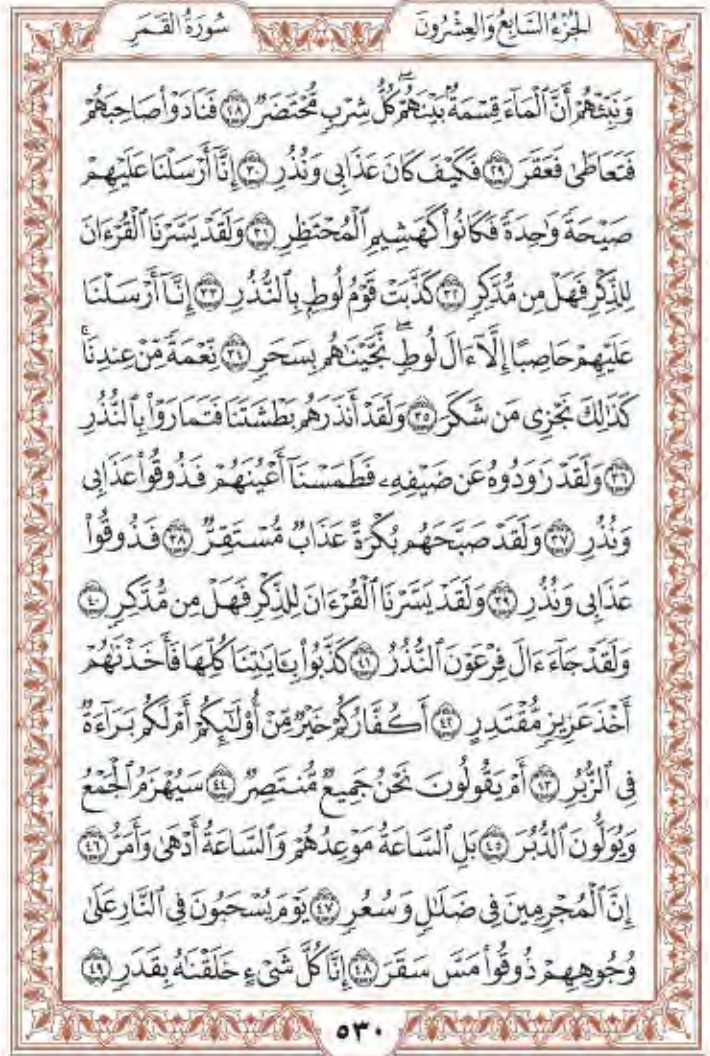 سُورَةُ القَمَر
الجُزْءُ السَّابِعُ وَالعِشْرُونَ
وَنَبِّئْهُمْ أَنَّ ٱلْمَآءَ قِسْمَةُۢ بَيْنَهُمْۖ كُلُّ شِرْبٖ مُّحْتَضَرٞ ٢٨ فَنَادَوْاْ صَاحِبَهُمْ
فَتَعَاطَىٰ فَعَقَرَ ٢٩ فَكَيْفَ كَانَ عَذَابِي وَنُذُرِ ٣٠ إِنَّآ أَرْسَلْنَا عَلَيْهِمْ
صَيْحَةٗ وَٰحِدَةٗ فَكَانُواْ كَهَشِيمِ ٱلْمُحْتَظِرِ ٣١ وَلَقَدْ يَسَّرْنَا ٱلْقُرْءَانَ
لِلذِّكْرِ فَهَلْ مِن مُّدَّكِرٖ ٣٢ كَذَّبَتْ قَوْمُ لُوطِۭ بِٱلنُّذُرِ ٣٣ إِنَّآ أَرْسَلْنَا
عَلَيْهِمْ حَاصِبًا إِلَّآ ءَالَ لُوطٖۖ نَّجَّيْنَٰهُم بِسَحَرٖ ٣٤ نِّعْمَةٗ مِّنْ عِندِنَاۚ
كَذَٰلِكَ نَجْزِي مَن شَكَرَ ٣٥ وَلَقَدْ أَنذَرَهُم بَطْشَتَنَا فَتَمَارَوْاْ بِٱلنُّذُرِ
٣٦ وَلَقَدْ رَٰوَدُوهُ عَن ضَيْفِهِۦ فَطَمَسْنَآ أَعْيُنَهُمْ فَذُوقُواْ عَذَابِي
وَنُذُرِ ٣٧ وَلَقَدْ صَبَّحَهُم بُكْرَةً عَذَابٞ مُّسْتَقِرّٞ ٣٨ فَذُوقُواْ
عَذَابِي وَنُذُرِ ٣٩ وَلَقَدْ يَسَّرْنَا ٱلْقُرْءَانَ لِلذِّكْرِ فَهَلْ مِن مُّدَّكِرٖ ٤٠
وَلَقَدْ جَآءَ ءَالَ فِرْعَوْنَ ٱلنُّذُرُ ٤١ كَذَّبُواْ بِـَٔايَٰتِنَا كُلِّهَا فَأَخَذْنَٰهُمْ
أَخْذَ عَزِيزٖ مُّقْتَدِرٍ ٤٢ أَكُفَّارُكُمْ خَيْرٞ مِّنْ أُوْلَٰٓئِكُمْ أَمْ لَكُم بَرَآءَةٞ
فِي ٱلزُّبُرِ ٤٣ أَمْ يَقُولُونَ نَحْنُ جَمِيعٞ مُّنتَصِرٞ ٤٤ سَيُهْزَمُ ٱلْجَمْعُ
وَيُوَلُّونَ ٱلدُّبُرَ ٤٥ بَلِ ٱلسَّاعَةُ مَوْعِدُهُمْ وَٱلسَّاعَةُ أَدْهَىٰ وَأَمَرُّ ٤٦
إِنَّ ٱلْمُجْرِمِينَ فِي ضَلَٰلٖ وَسُعُرٖ ٤٧ يَوْمَ يُسْحَبُونَ فِي ٱلنَّارِ عَلَىٰ
وُجُوهِهِمْ ذُوقُواْ مَسَّ سَقَرَ ٤٨ إِنَّا كُلَّ شَيْءٍ خَلَقْنَٰهُ بِقَدَرٖ ٤٩
٥٣٠